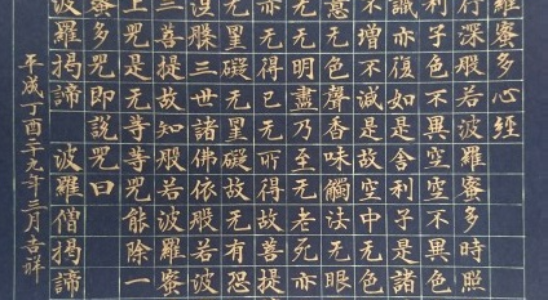 羅蜜多心經
行深般若波羅蜜多時照
利子色不異空空不異色
識亦復如是舍利子是諸
不增不減是故空中无色
意无色聲香味觸法无眼
无无明盡乃至无老死亦
亦无得已无所得故善提
无罣礙无罣礙故无有恐
涅槃三世諸佛依般若波
三善提故知般若波羅蜜
上咒是无等等咒能除一
蜜多咒即說咒曰
波羅揭諦 波羅僧揭諦
平成丁酉二十九年三月吉祥